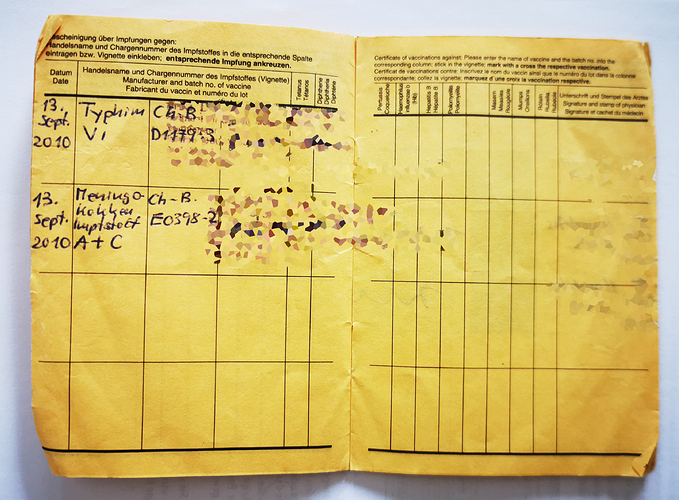 Bescheinigung über Impfungen gegen:
Handelsname und Chargennummer des Impfstoffes in die entsprechende Spalte
eintragen bzw. Vignette einkleben; entsprechende Impfung ankreuzen.
Datum
Date
Handelsname und Chargennummer des Impfstoffes (Vignette)
Manufacturer and batch no. of vaccine
Fabricant du vaccin et numéro du lot
Tetanus
Tétanos
Diphtherie
Diphtheria
Diphtérie
13.
Sept.
2010
Typhim
Vi
Ch-B
13.
Sept.
2010
Meningo-
kokken
Impfstoff
A+C
Ch-B.
E0398-2
Certificate of vaccinations against: Please enter the name of vaccine and the batch no. into the
corresponding column; stick in the vignette; mark with a cross the respective vaccination.
Certificat de vaccinations contre: Inscrivez le nom du vaccin ainsi que le numéro du lot dans la colonne
correspondante; collez la vignette; marquez d'une croix la vaccination respective.
Pertussis
Coqueluche
Haemophilus
influenzae b
(Hib)
Hepatitis B
Hépatite B
Poliomyelitis
Poliomyélite
Masern
Measles
Rougeole
Mumps
Oreillons
Röteln
Rubella
Rubéole
Unterschrift und Stempel des Arztes
Signature and stamp of physician
Signature et cachet du médecin